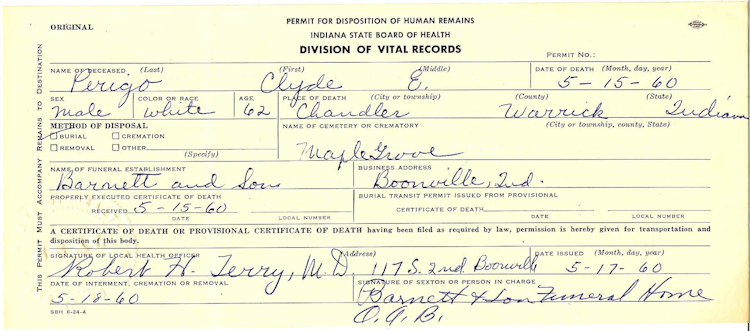 ORIGINAL
PERMIT FOR DISPOSITION OF HUMAN REMAINS
INDIANA STATE BOARD OF HEALTH
DIVISION OF VITAL RECORDS
PERMIT NO.:
THIS PERMIT MUST ACCOMPANY REMAINS TO DESTINATION
NAME OF DECEASED (Last) (First) (Middle) DATE OF DEATH (Month, day, year)
Perigo Clyde E. 5-15-60
SEX COLOR OR RACE AGE PLACE OF DEATH (City or township) (County) (State)
Male White 62 Chandler Warrick Indiana
METHOD OF DISPOSAL NAME OF CEMETERY OR CREMATORY (City or township, county, State)
BURIAL CREMATION
REMOVAL OTHER
(Specify)
Maple Grove
NAME OF FUNERAL ESTABLISHMENT BUSINESS ADDRESS
Barnett and Sons Boonville, Ind.
PROPERLY EXECUTED CERTIFICATE OF DEATH BURIAL TRANSIT PERMIT ISSUED FROM PROVISIONAL
RECEIVED 5-15-60 CERTIFICATE OF DEATH
DATE LOCAL NUMBER DATE LOCAL NUMBER
A CERTIFICATE OF DEATH OR PROVISIONAL CERTIFICATE OF DEATH having been filed as required by law, permission is hereby given for transportation and
disposition of this body.
SIGNATURE OF LOCAL HEALTH OFFICER (Address) DATE ISSUED (Month, day, year)
Robert H. Terry, M.D. 117 S. 2nd Boonville 5-17-60
DATE OF INTERMENT, CREMATION OR REMOVAL SIGNATURE OF SEXTON OR PERSON IN CHARGE
5-18-60 Barnett & Son Funeral Home
O.A.B.
SBH 6-24-4